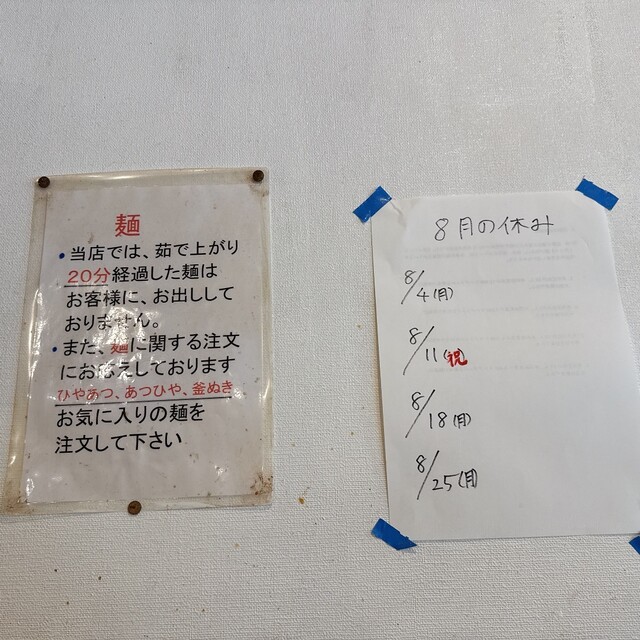 麺
・当店では、茹で上がり
20分経過した麺は
お客様に、お出しして
おりません。
・また、麺に関する注文
にお応えしております
ひやあつ、あつひや、釜ぬき
お気に入りの麺を
注文して下さい
8月の休み
8/4(月)
8/11(祝)
8/18(月)
8/25(月)